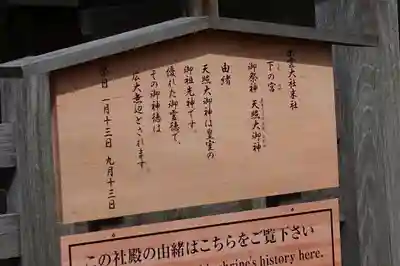 出雲大社末社
下の宮
御祭神 天照大御神
あまてらすおおみかみ
由緒
天照大御神は皇室の
御祖先神です。
優れた御霊徳で、
その御神徳は
広大無辺とされます。
祭日 一月十三日 九月十三日
この社殿の由緒はこちらをご覧下さい
shrine's history here.